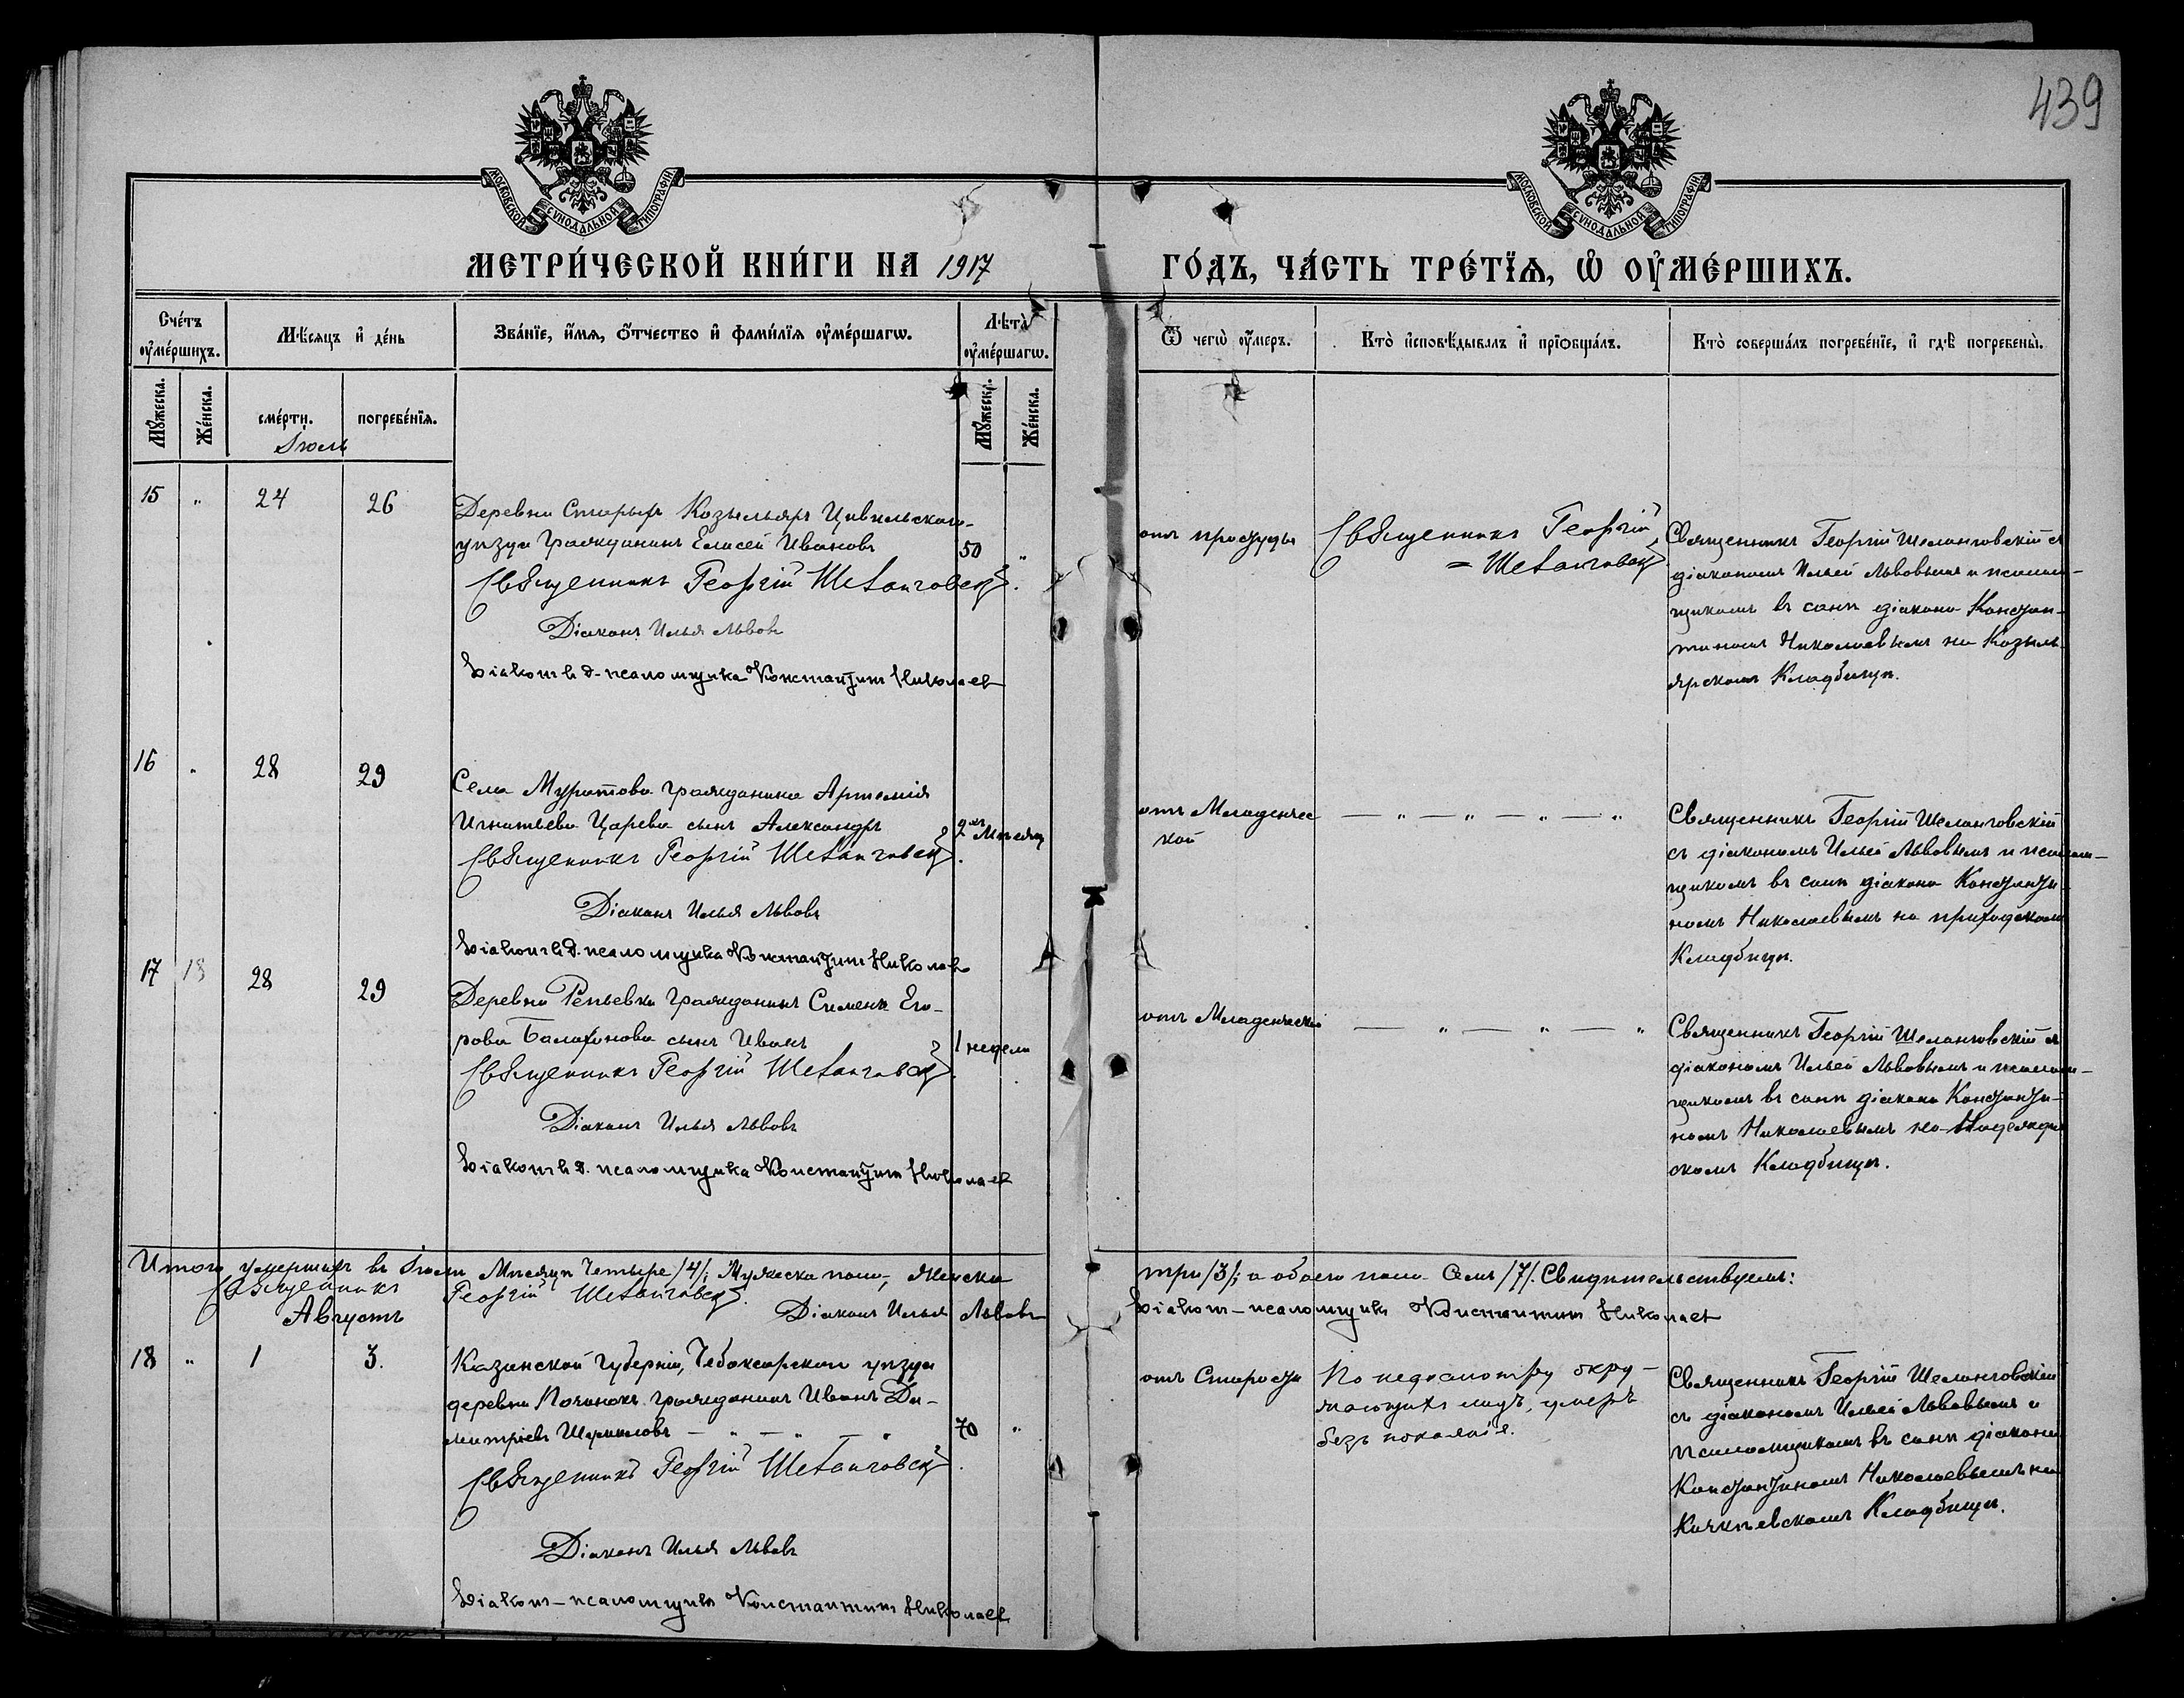 439
МОСКОВСКОЙ СѴНОДАЛЬНОЙ ТИПОГРАФІИ
МОСКОВСКОЙ СѴНОДАЛЬНОЙ ТИПОГРАФІИ
МЕТРИ́ЧЕСКОЙ КНИ́ГИ НА 1917
ГО́ДЪ, ЧА́СТЬ ТРЕ́ТЇѦ, Ѡ҆ ОУ҆МЕ́РШИХЪ.
Сче́тъ оу҆ме́ршихъ.
Мѣ́сяцъ и҆ де́нь
Зва́нїе, и҆́мя, ѻ҆́тчество и҆ фами́лїя оу҆ме́ршагѡ.
Лѣ́та оу҆ме́ршагѡ.
Ѿ чегѡ̀ оу҆́меръ.
Кто̀ и҆сповѣ́дывалъ и҆ прїѡбща́лъ.
Кто̀ соверша́лъ погребе́нїе, и҆ гдѣ̀ погребены̀.
Му́жеска.
Же́нска.
сме́рти.
погребе́нїя.
Му́жеска.
Же́нска.
Іюль
15 " 24 26
Деревни Старыхъ Козыльяръ Цивильскаго
уѣзда гражданинъ Елисей Ивановъ
50 "
Священникъ Георгій Шеланговскій.
Діаконъ Илья Львовъ
Діаконъ в д. псаломщика Константинъ Николаевъ
отъ простуды
Священникъ Георгій
= Шеланговскій
Священникъ Георгій Шеланговскій съ
діакономъ Ильей Львовымъ и псалом-
щикомъ въ санѣ діакона Констан-
тиномъ Николаевымъ на Козыль-
ярскомъ Кладбищѣ.
16 " 28 29
Села Муратова гражданина Артемія
Игнатьева Царева сынъ Александръ
2хъ Мѣсяц
Священникъ Георгій Шеланговскій.
Діаконъ Илья Львовъ
Діаконъ в д. псаломщика Константинъ Николаевъ
отъ Младенчес
кой
— " — " — " — "
Священникъ Георгій Шеланговскій
съ діакономъ Ильей Львовымъ и псалом-
щикомъ въ санѣ діакона Константи-
номъ Николаевымъ на приходскомъ
Кладбищѣ.
17 18 28 29
Деревни Репьевки гражданинъ Симеона Его-
рова сынъ Иванъ
1 недели
Священникъ Георгій Шеланговскій.
Діаконъ Илья Львовъ
Діаконъ в д. псаломщика Константинъ Николаевъ
отъ Младенческой
— " — " — "
Священникъ Георгій Шеланговскій съ
діакономъ Ильей Львовымъ и псалом-
щикомъ въ санѣ діакона Константи-
номъ Николаевымъ на
скомъ Кладбищѣ.
Итого умершихъ въ Іюлѣ Мѣсяцѣ Четыре /4/; Мужеска пола, Женска
три /3/; а обоего пола Семь /7/. Свидѣтельствуемъ:
Священникъ Георгій Шеланговскій.
Діаконъ Илья Львовъ
Діаконъ-псаломщикъ Константинъ Николаевъ
Августъ
18 " 1 3.
Казанской губерніи, Чебоксарскаго уѣзда
деревни Починокъ гражданинъ Иванъ Ди-
митріевъ — " — " — "
70 "
Священникъ Георгій Шеланговскій.
Діаконъ Илья Львовъ
Діаконъ-псаломщикъ Константинъ Николаевъ
отъ Старости
По недосмотру окру-
жающихъ лицъ, умеръ
безъ покаянія.
Священникъ Георгій Шеланговскій
съ діакономъ Ильей Львовымъ и
псаломщикомъ въ санѣ діакона
Константиномъ Николаевымъ на
Кладбищѣ.